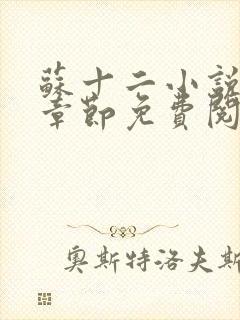 蘇十二小說
章節免費閱
奧斯特洛夫斯